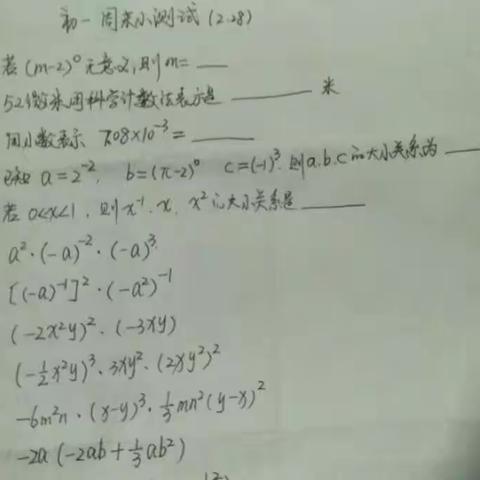 初一周末小测试 (2.28)
若 (m-2)⁰ 无意义,则 m= ___
52微米用科学计数法表示是 ______ 米
用小数表示 7.08×10⁻³ = ______
已知 a=2⁻², b=(π-2)⁰ c=(-1)³. 则 a.b.c 的大小关系为 ___
若 0<x<1, 则 x⁻¹. x. x² 的大小关系是 ______
a²·(-a)⁻²·(-a)³
[(-a)⁻¹]²·(-a²)⁻¹
(-2x²y)²·(-3xy)
(-½x²y)³·3xy²·(2xy²)²
-6m²n·(x-y)³·⅓mn²(y-x)²
-2a(-2ab+⅓ab²)